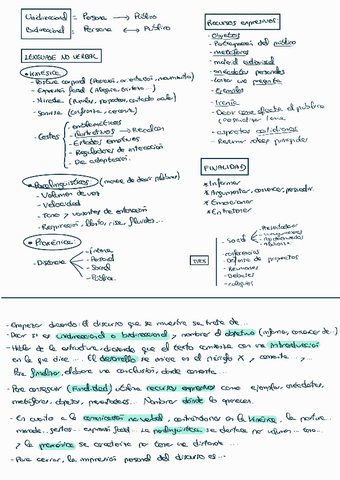 Unidireccional = Persona → Público
Bidireccional = Persona ↔ Público
LENGUAJE NO VERBAL
* Kinésica
- Postura corporal (Posición, orientación, movimiento)
- Expresión facial (Alegría,
- Mirada (
contacto visual)
- Sonrisa (confronte, cercana)
- Gestos
emblemáticos
Ilustrativos → Recalcan
Estados emotivos
Reguladores de interacción
De adaptación.
* Paralingüística (manera de decir palabras)
- Volumen de voz
- Velocidad
- Tono y variantes de entonación
- Respiración, llanto, risa, fluidez...
* Proxémica
- Distancia
- Íntima
- Personal
- Social
- Pública
RECURSOS EXPRESIVOS
- Objetos
- Participación del público
- Metáforas
- material adicional
- anécdotas personales
- lanzar una pregunta
- Ejemplos
- Ironía
- Decir como afecta al público
- aspectos cotidianos
- Resumir ideas principales
FINALIDAD
* Informar
* Argumentar, convencer, persuadir
* Emocionar
* Entretener
TIPOS
- Social
- Presentador
- conferencias
- Defensa de proyectos
- Reuniones
- Debates
- coloquios
- Empezar diciendo: El discurso que se muestra se trata de...
- Decir si es unidireccional o bidireccional y nombrar el objetivo (informar, convencer de...)
- Hablar de la estructura, diciendo que el texto comienza con una introducción
en la que dice .... El desarrollo se inicia en el párrafo X, y comenta ... y ...
Por finalizar, elabora una conclusión, donde comenta ...
- Para conseguir (finalidad), utiliza recursos expresivos como ejemplos, anécdotas,
metáforas, objetos, preguntas... Nombrar donde lo aparecen.
- En cuanto a la comunicación no verbal, centrándonos en la kinésica, la postura,
mirada, gestos... expresión facial... La paralingüística se destaca por volumen... tono...
y la proxémica se caracteriza por tener una distancia ...
- Para cerrar, la impresión personal del discurso es...